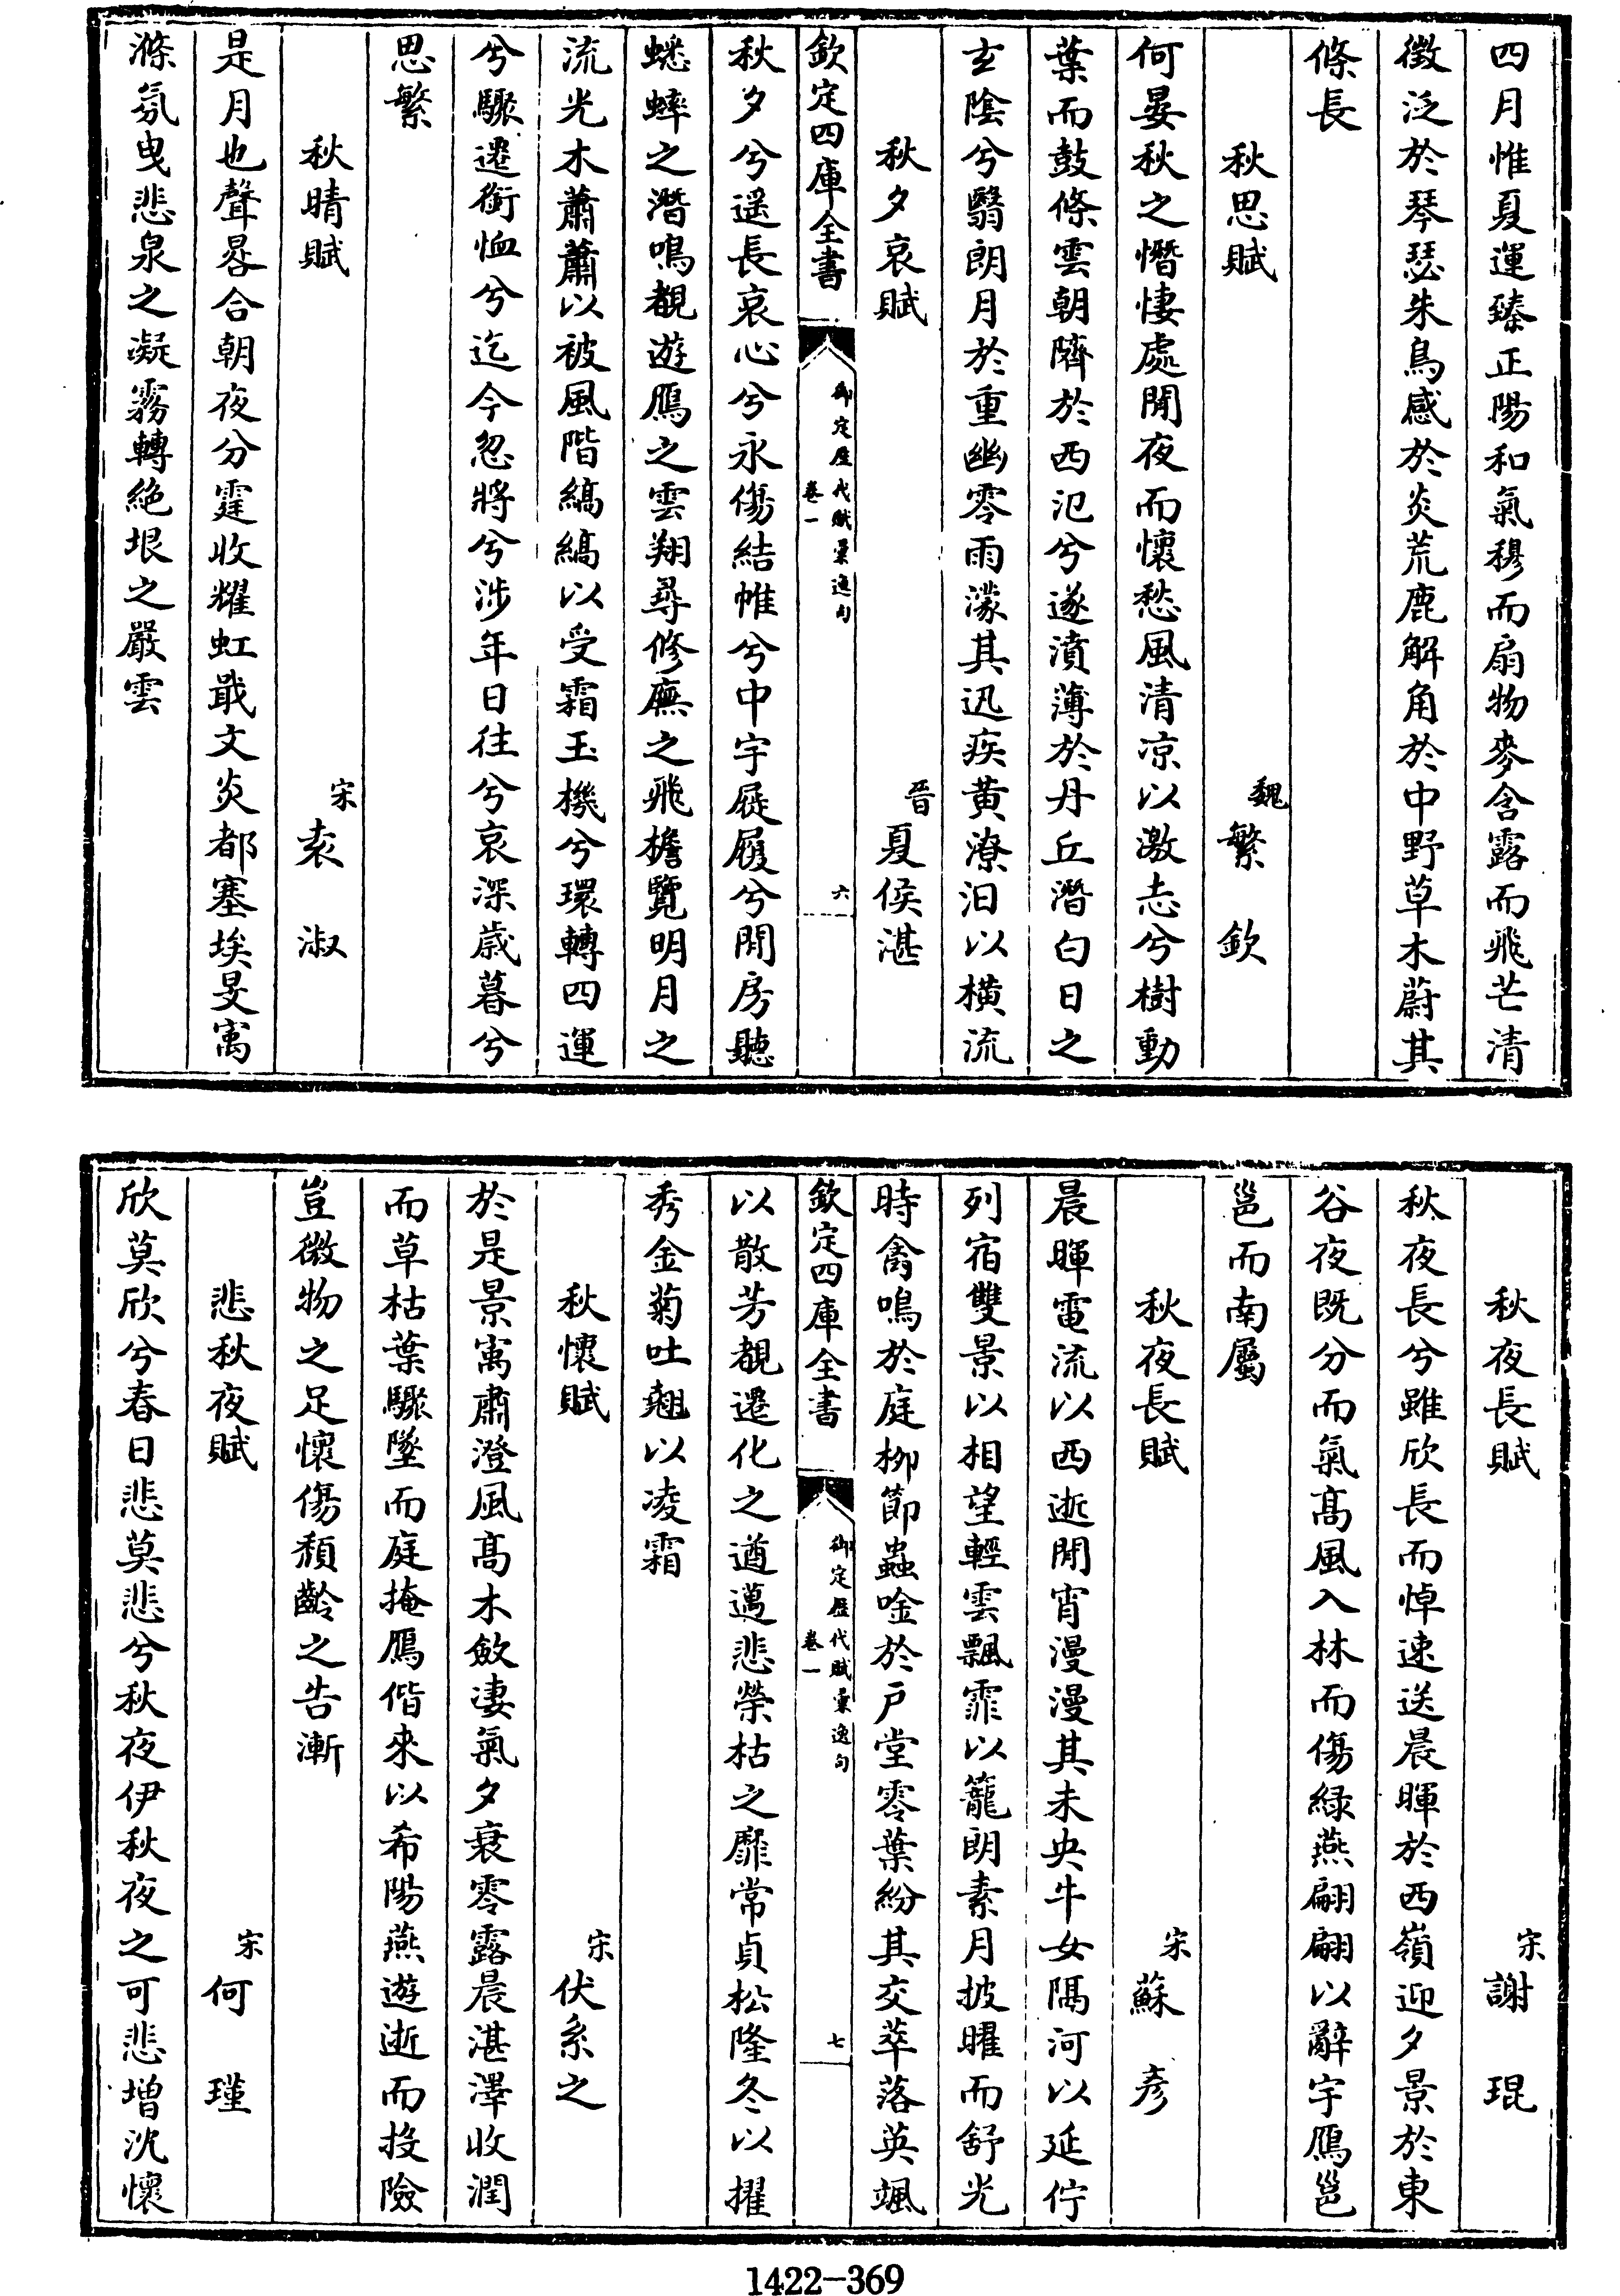 四月惟夏運臻正陽和氣穆而扇物麥含露而飛芒清
徴泛於琴瑟朱鳥感於炎荒鹿解角於中野草木蔚其
條長
秋思賦 魏繁欽
何晏秋之憯悽處閒夜而懷愁風清凉以激志兮樹動
葉而鼓條雲朝隮於西汜兮遂濆薄於丹丘潛白日之
玄隂兮翳朗月於重幽零雨濛其迅疾黄潦汩以横流
秋夕哀賦 晉夏侯湛
欽定四庫全書 御定歴代賦彙逸句 卷一 六
秋夕兮遥長哀心兮永傷結帷兮中宇屣履兮閒房聽
蟋蟀之潛鳴覩遊鴈之雲翔尋修廡之飛檐覽明月之
流光木蕭蕭以被風階縞縞以受霜玉機兮環轉四運
兮驟遷銜恤兮迄今忽將兮涉年日往兮哀深歲暮兮
思繁
秋晴賦 宋袁淑
是月也聲晷合朝夜分霆收耀虹戢文炎都塞埃旻寓
滌氛曳悲泉之凝霧轉絶垠之嚴雲
秋夜長賦 宋謝琨
秋夜長兮雖欣長而悼速送晨暉於西嶺迎夕景於東
谷夜既分而氣髙風入林而傷緑燕翩翩以辭宇鴈邕
邕而南屬
秋夜長賦 宋蘇彦
晨暉電流以西逝閒宵漫漫其未央牛女隔河以延佇
列宿雙景以相望輕雲飄霏以籠朗素月披曜而舒光
時禽鳴於庭栁節蟲唫於戸堂零葉紛其交萃落英颯
欽定四庫全書 御定歴代賦彙逸句 卷一 七
以散芳覩遷化之遒邁悲榮枯之靡常貞松隆冬以擢
秀金菊吐翹以凌霜
秋懷賦 宋伏系之
於是景寓肅澄風髙木斂凄氣夕衰零露晨湛澤收潤
而草枯葉驟墜而庭掩鴈偕來以希陽燕遊逝而投險
豈微物之足懷傷頽齡之告漸
悲秋夜賦 宋何瑾
欣莫欣兮春日悲莫悲兮秋夜伊秋夜之可悲增沈懷
1422-369